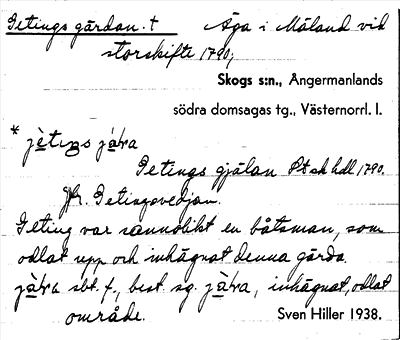 Getings gärdan. † Äga i Måland vid
storskifte 1790,
Skogs s:n., Ångermanlands
södra domsagas tg., Västernorrl. l.
* jètings jära
Getings gjälan hdl 1790.
Jfr. Getingsvedjan.
Geting var sannolikt en båtsman, som
odlat upp och inhägnat denna gärda.
jära sbt. f., best. sg. jära, inhägnat, odlat
område. Sven Hiller 1938.